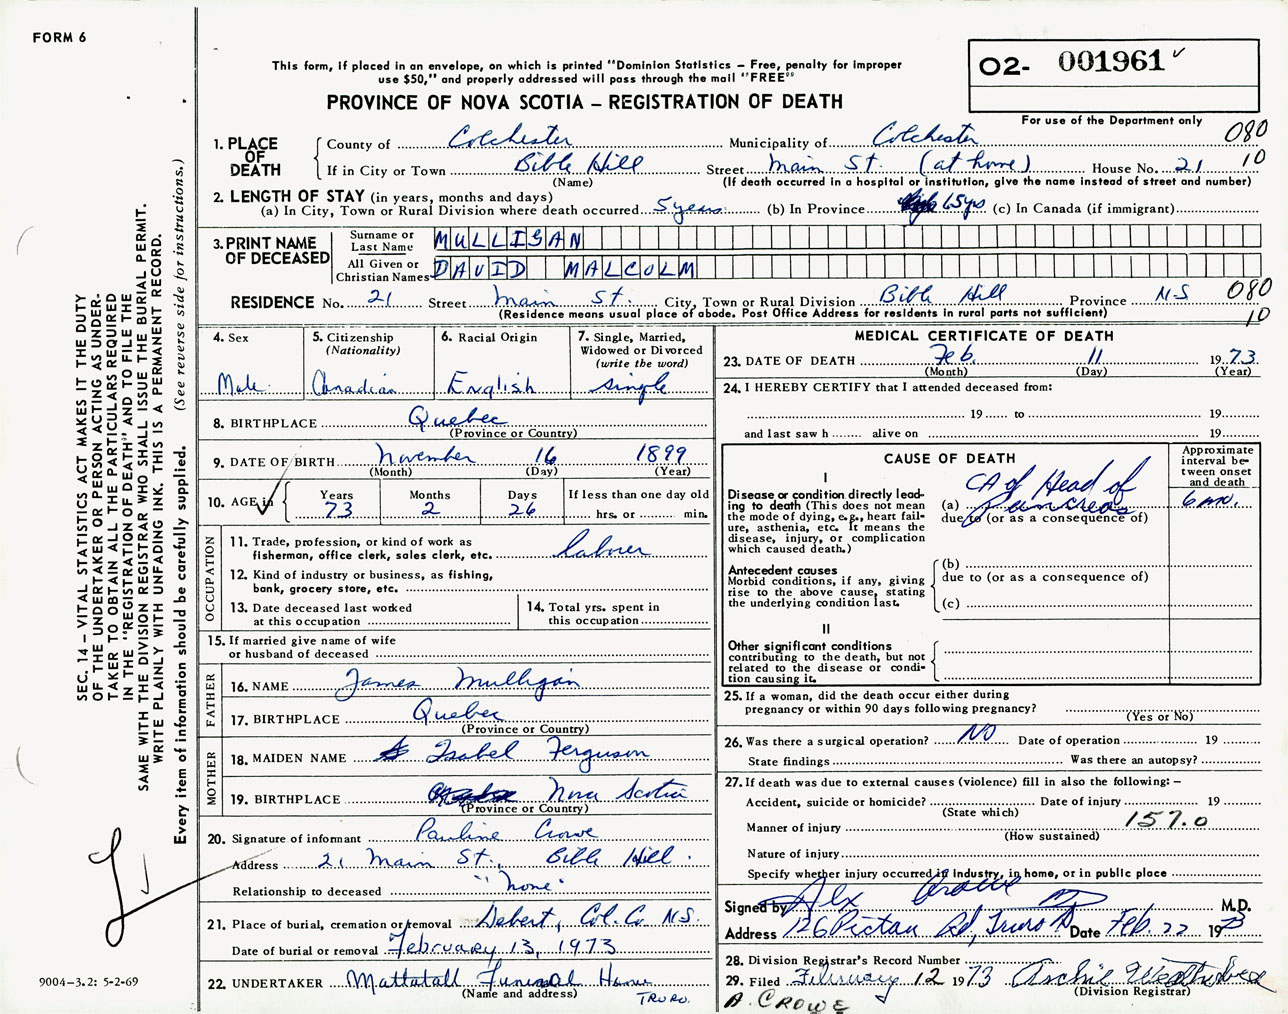 FORM 6
This form, if placed in an envelope, on which is printed "Dominion Statistics – Free, penalty for improper
use $50," and properly addressed will pass through the mail "FREE"
PROVINCE OF NOVA SCOTIA – REGISTRATION OF DEATH
02- 001961
For use of the Department only
080
10
1. PLACE OF DEATH
County of Colchester Municipality of Colchester
If in City or Town Bible Hill Street Main St. (at home) House No. 21
(Name) (If death occurred in a hospital or institution, give the name instead of street and number)
2. LENGTH OF STAY (in years, months and days)
(a) In City, Town or Rural Division where death occurred 5 years (b) In Province 65 yrs (c) In Canada (if immigrant)
3. PRINT NAME OF DECEASED
Surname or Last Name MULLIGAN
All Given or Christian Names DAVID MALCOLM
RESIDENCE No. 21 Street Main St. City, Town or Rural Division Bible Hill Province N-S 080
(Residence means usual place of abode. Post Office Address for residents in rural parts not sufficient) 10
4. Sex
Male
5. Citizenship
(Nationality)
Canadian
6. Racial Origin
English
7. Single, Married,
Widowed or Divorced
(write the word)
single
8. BIRTHPLACE Quebec
(Province or Country)
9. DATE OF BIRTH November 16 1899
(Month) (Day) (Year)
10. AGE in
Years 73
Months 2
Days 26
If less than one day old
hrs. or min.
OCCUPATION
11. Trade, profession, or kind of work as
fisherman, office clerk, sales clerk, etc. laborer
12. Kind of industry or business, as fishing,
bank, grocery store, etc.
13. Date deceased last worked
at this occupation
14. Total yrs. spent in
this occupation
15. If married give name of wife
or husband of deceased
FATHER
16. NAME James Mulligan
17. BIRTHPLACE Quebec
(Province or Country)
MOTHER
18. MAIDEN NAME Isabel Ferguson
19. BIRTHPLACE Nova Scotia
(Province or Country)
20. Signature of informant Pauline Crowe
Address 21 Main St., Bible Hill.
Relationship to deceased "none"
21. Place of burial, cremation or removal Debert, Col. Co. N.S.
Date of burial or removal February 13, 1973
22. UNDERTAKER Mattatall Funeral Home
(Name and address) TRURO.
MEDICAL CERTIFICATE OF DEATH
23. DATE OF DEATH Feb. 11 1973
(Month) (Day) (Year)
24. I HEREBY CERTIFY that I attended deceased from:
19 to 19
and last saw h alive on 19
CAUSE OF DEATH
Approximate
interval be-
tween onset
and death
I
Disease or condition directly lead-
ing to death (This does not mean
the mode of dying, e.g., heart fail-
ure, asthenia, etc. It means the
disease, injury, or complication
which caused death.)
(a) CA of Head of Pancreas 6 mo.
due to (or as a consequence of)
Antecedent causes
Morbid conditions, if any, giving
rise to the above cause, stating
the underlying condition last.
(b)
due to (or as a consequence of)
(c)
II
Other significant conditions
contributing to the death, but not
related to the disease or condi-
tion causing it.
25. If a woman, did the death occur either during
pregnancy or within 90 days following pregnancy?
(Yes or No)
26. Was there a surgical operation? NO Date of operation 19
State findings Was there an autopsy?
27. If death was due to external causes (violence) fill in also the following: –
Accident, suicide or homicide? Date of injury 19
(State which)
Manner of injury 157.0
(How sustained)
Nature of injury
Specify whether injury occurred in Industry, in home, or in public place
Signed by Alx Crowe M.D.
Address 126 Pictou Rd, Truro Date Feb. 22 1973
28. Division Registrar's Record Number
29. Filed February 12 1973 Archie
(Division Registrar)
A. CROWE
SEC. 14 – VITAL STATISTICS ACT MAKES IT THE DUTY
OF THE UNDERTAKER OR PERSON ACTING AS UNDER-
TAKER TO OBTAIN ALL THE PARTICULARS REQUIRED
IN THE "REGISTRATION OF DEATH" AND TO FILE THE
SAME WITH THE DIVISION REGISTRAR WHO SHALL ISSUE THE BURIAL PERMIT.
WRITE PLAINLY WITH UNFADING INK. THIS IS A PERMANENT RECORD.
Every item of information should be carefully supplied. (See reverse side for instructions.)
9004–3.2: 5-2-69